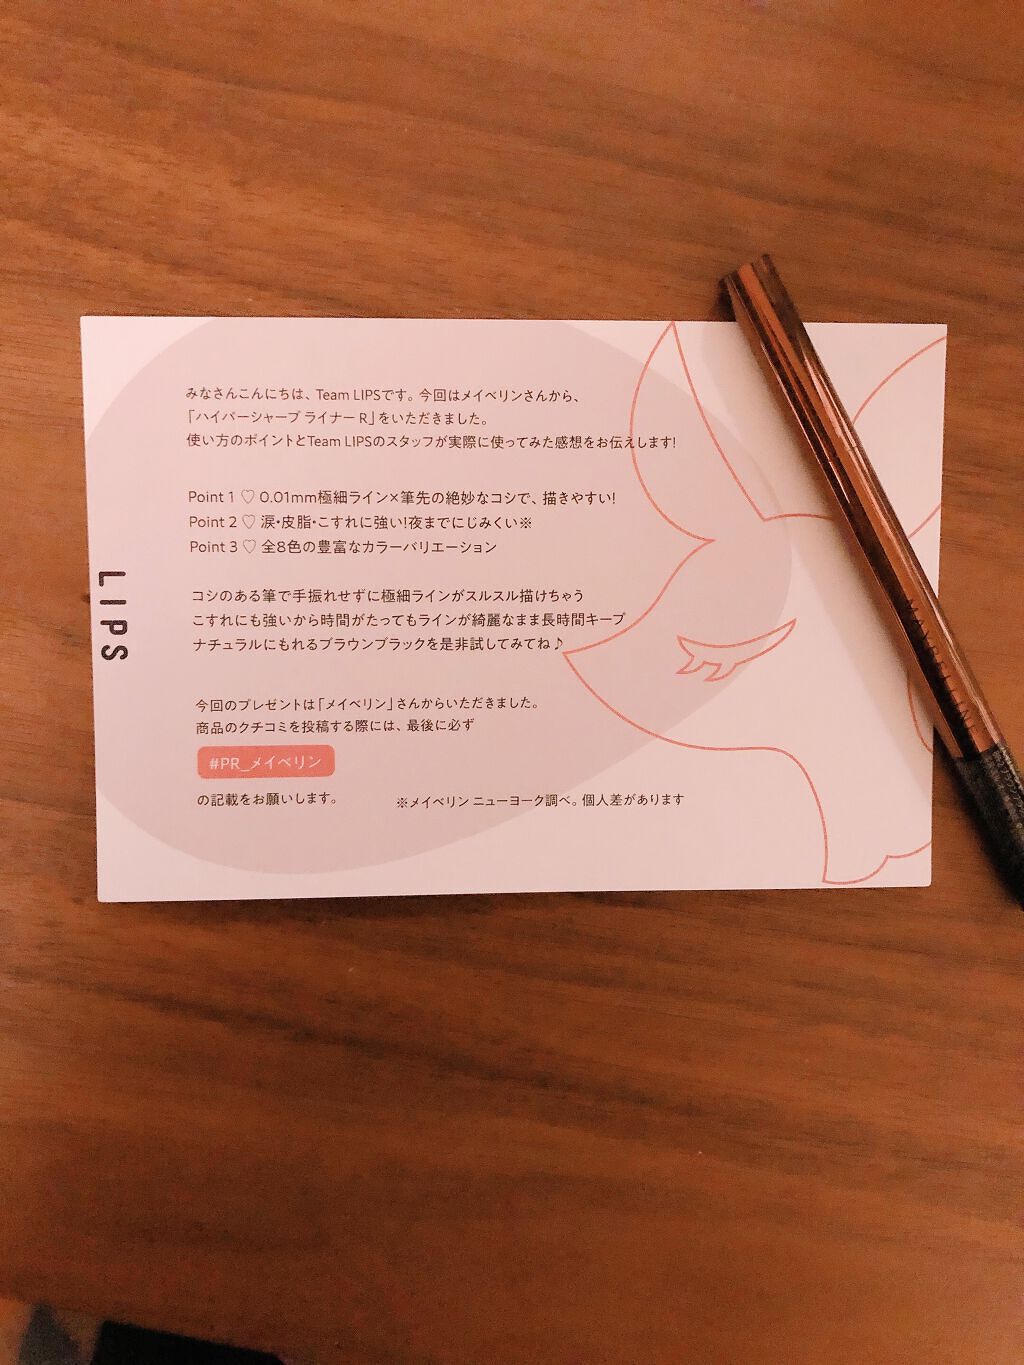 みなさんこんにちは、Team LIPSです。今回はメイベリンさんから、
「ハイパーシャープ ライナー R」をいただきました。
使い方のポイントとTeam LIPSのスタッフが実際に使ってみた感想をお伝えします!
Point 1 ♡ 0.01mm極細ライン×筆先の絶妙なコシで、描きやすい!
Point 2 ♡ 涙・皮脂・こすれに強い!夜までにじみくい※
Point 3 ♡ 全8色の豊富なカラーバリエーション
コシのある筆で手振れせずに極細ラインがスルスル描けちゃう
こすれにも強いから時間がたってもラインが綺麗なまま長時間キープ
ナチュラルにもれるブラウンブラックを是非試してみてね♪
今回のプレゼントは「メイベリン」さんからいただきました。
商品のクチコミを投稿する際には、最後に必ず
#PR_メイベリン
の記載をお願いします。
※メイベリン ニューヨーク調べ。個人差があります
LIPS